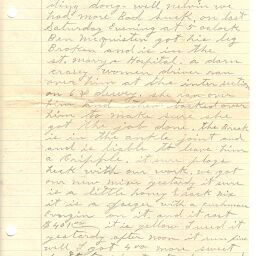 ding dong. well nelvin we
had more Bad luck, on last
Saturday Evening at 5 oclock
Ben mcquisten got his leg
Broken and is in the
st. marys Hospital, a darn
crasey women, driver ran
over him at the intersection
on 6 & dewey, she ran over
him and then backed over
him to make sure she
got the job done, the Break
is in the ankle joint and
and is liable to leave him
a cripple, it sure plays
heck with our work, we got
our new mixer yesterday it sure
is a little honey & back nie
it is a Jaeger with a cushman
engin on it and it cost
it is yellow I used it
yesterday after noon it runs fine
well I got 400 more sweet